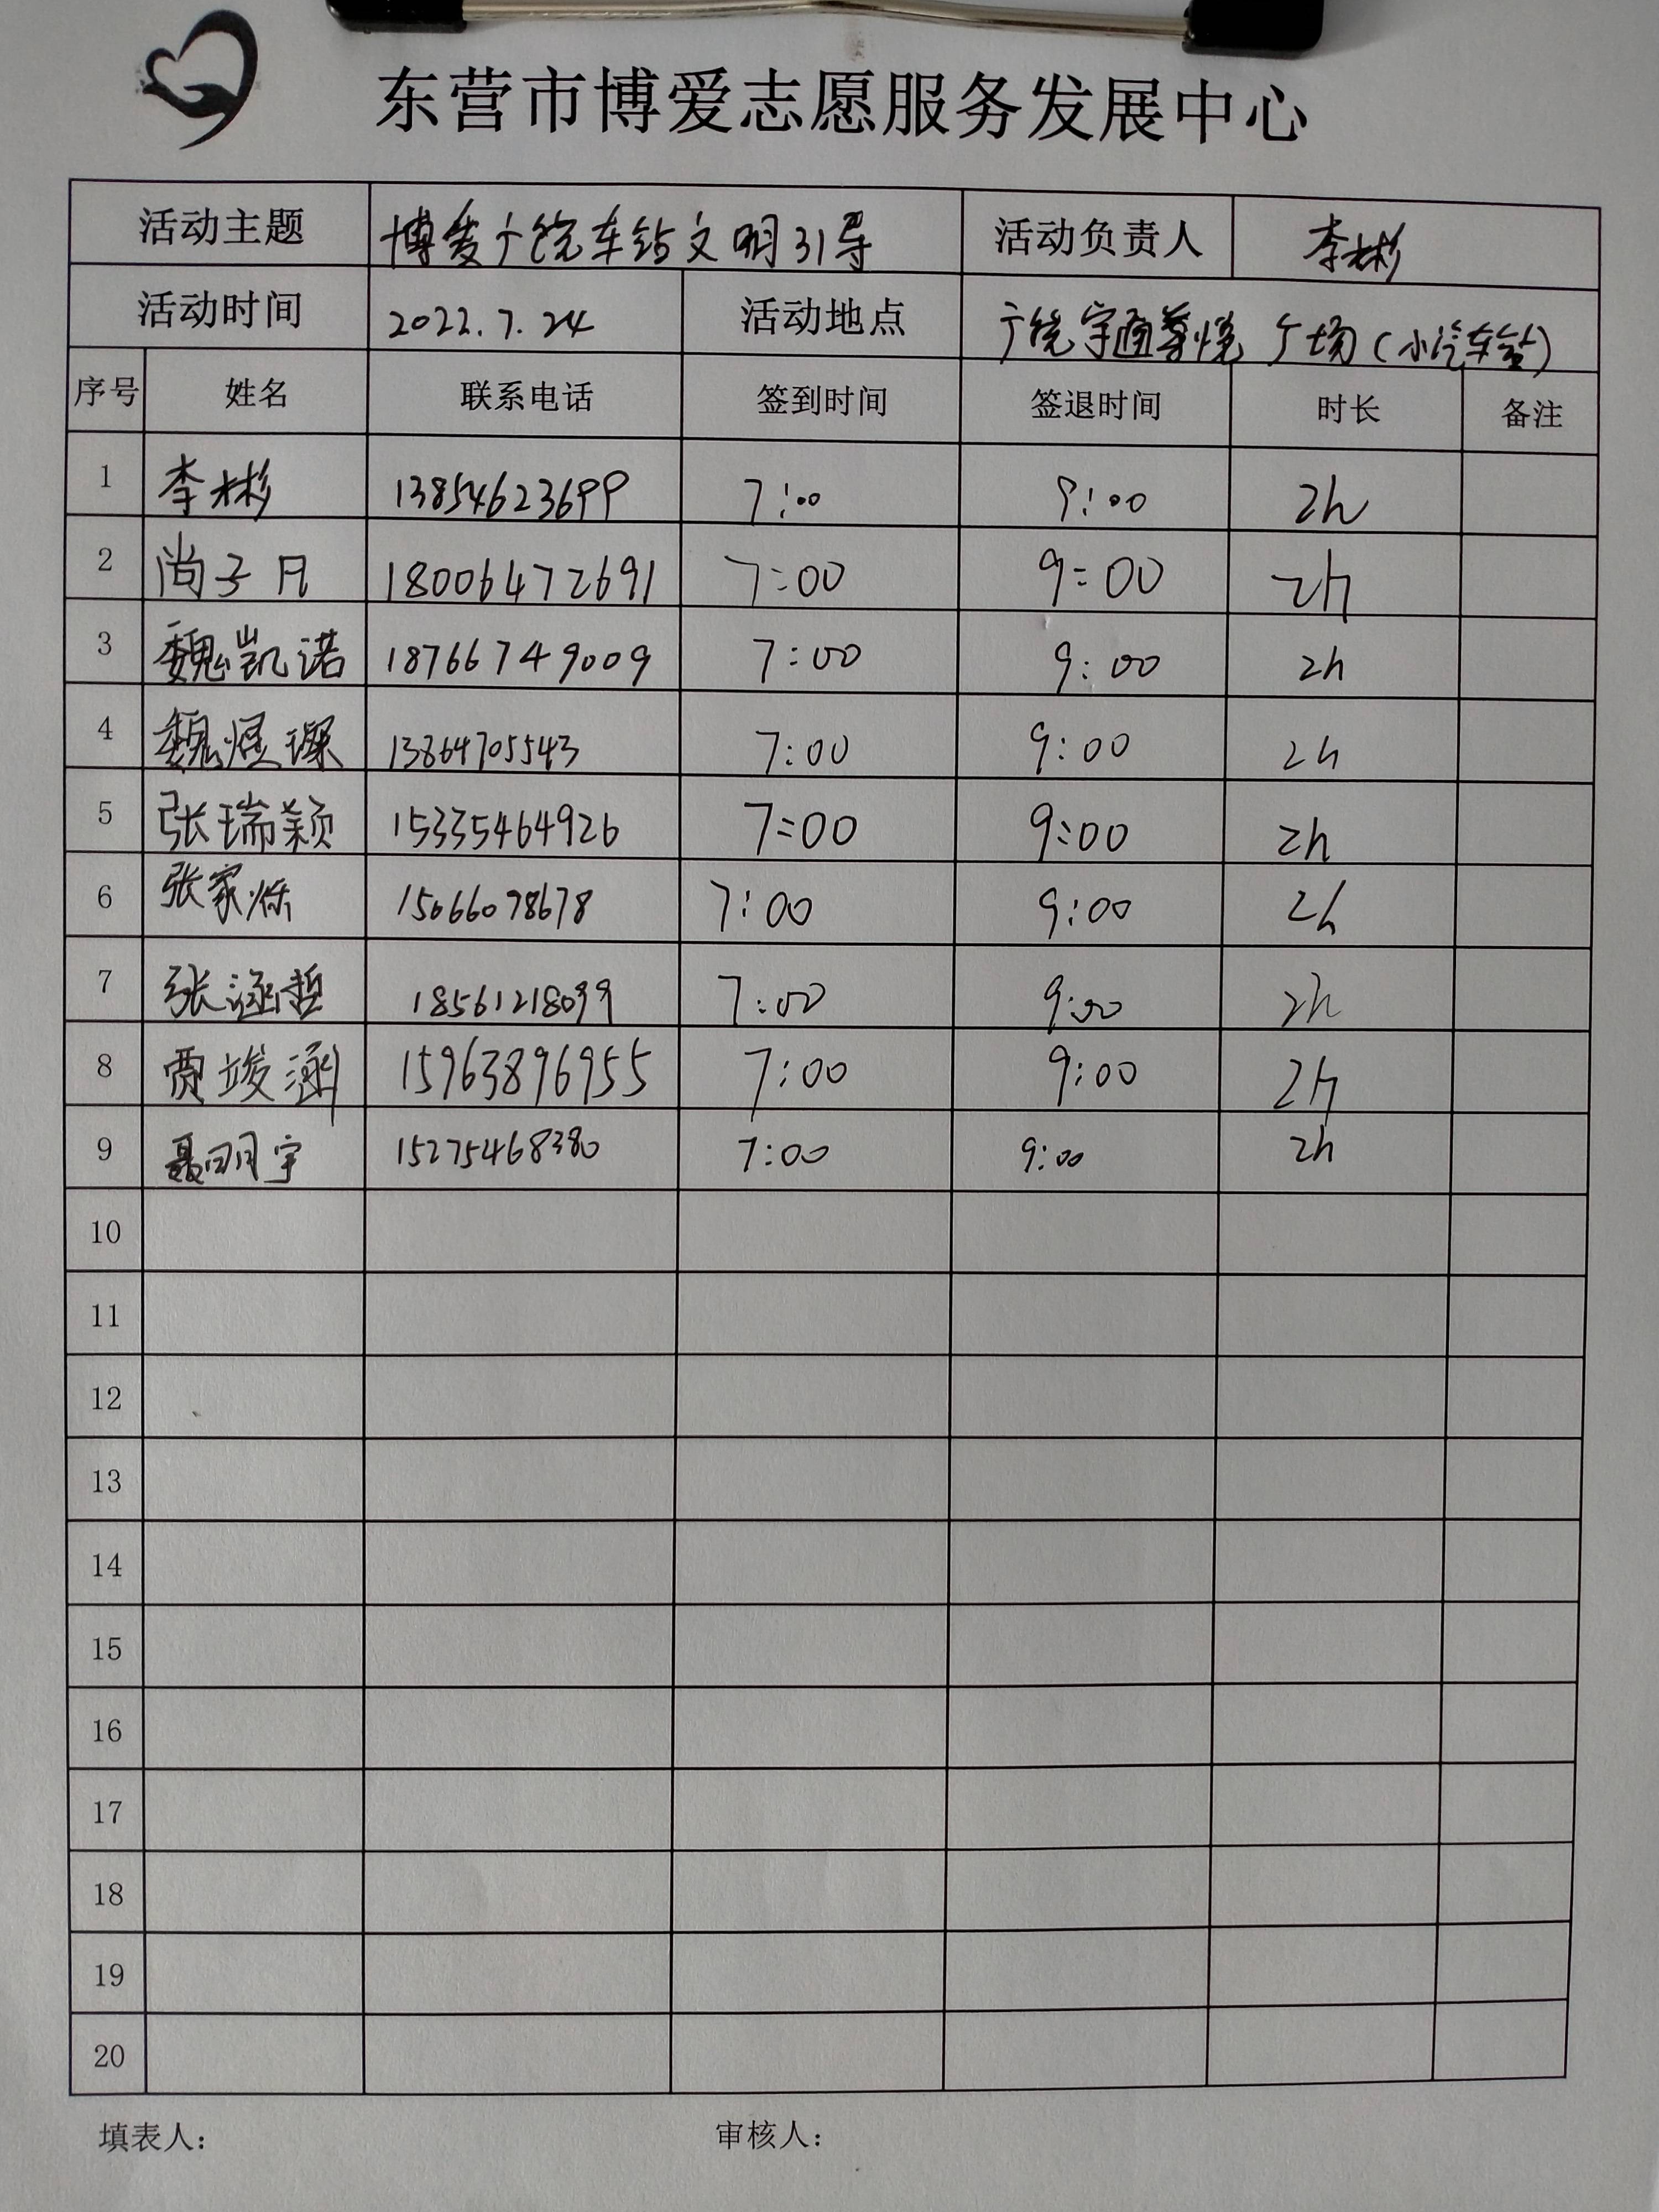 东营市博爱志愿服务发展中心
活动主题 博爱广饶车站文明引导 活动负责人 李彬
活动时间 2022.7.24 活动地点 广饶宇通尊悦广场(小汽车站)
序号 姓名 联系电话 签到时间 签退时间 时长 备注
1 李彬 13854623699 7:00 9:00 2h
2 尚子凡 18006472691 7:00 9:00 2h
3 魏凯诺 18766749009 7:00 9:00 2h
4 魏煜璨 13864705543 7:00 9:00 2h
5 张瑞颖 15335464926 7:00 9:00 2h
6 张家烁 15066078678 7:00 9:00 2h
7 张涵哲 18561218099 7:00 9:00 2h
8 贾竣涵 15963896955 7:00 9:00 2h
9 聂明宇 15275468380 7:00 9:00 2h
10
11
12
13
14
15
16
17
18
19
20
填表人: 审核人: